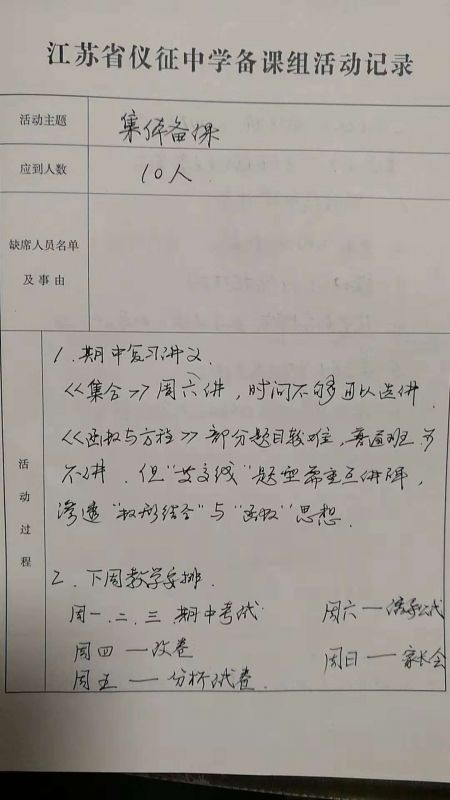 江苏省仪征中学备课组活动记录
活动主题 集体备课
应到人数 10人
缺席人员名单
及事由
活动过程
1. 期中复习讲义
<<集合>> 周六讲, 时间不够可以选讲.
<<函数与方程>> 部分题目较难, 普通班可
不讲. 但"交线"题型需重点讲解,
渗透"数形结合"与"函数"思想.
2. 下周教学安排.
周一.二.三 期中考试 周六—
周四—改卷 周日—家长会
周五—分析试卷.